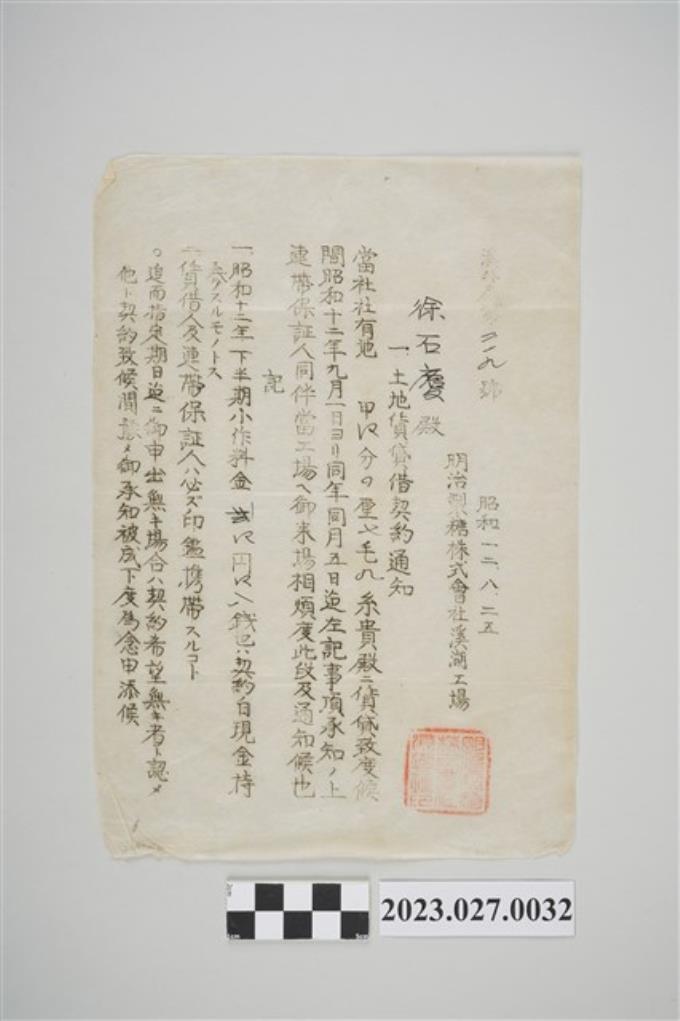 號
昭和一二、八、二五
明治製糖株式會社溪湖工場
徐石慶殿
一、土地賃貸借契約通知
當社社有地 甲 分 厘七毛 糸貴殿ニ賃貸致度候
間昭和十二年九月一日ヨリ同年同月五日迄左記事項承知ノ上
連帶保証人同伴當工場ヘ御来場相煩度此段及通知候也
記
一、昭和十二年下半期小作料金 円 銭也ハ契約白現金持
参スルモノトス
一、賃借人及連帶保証人ハ必ズ印鑑携帶スルコト
○追而指定期日迄ニ御申出無キ場合ハ契約希望無キ者ト認メ
他ト契約致候間 御承知被成下度為念申添候
2023.027.0032
1cm
5cm